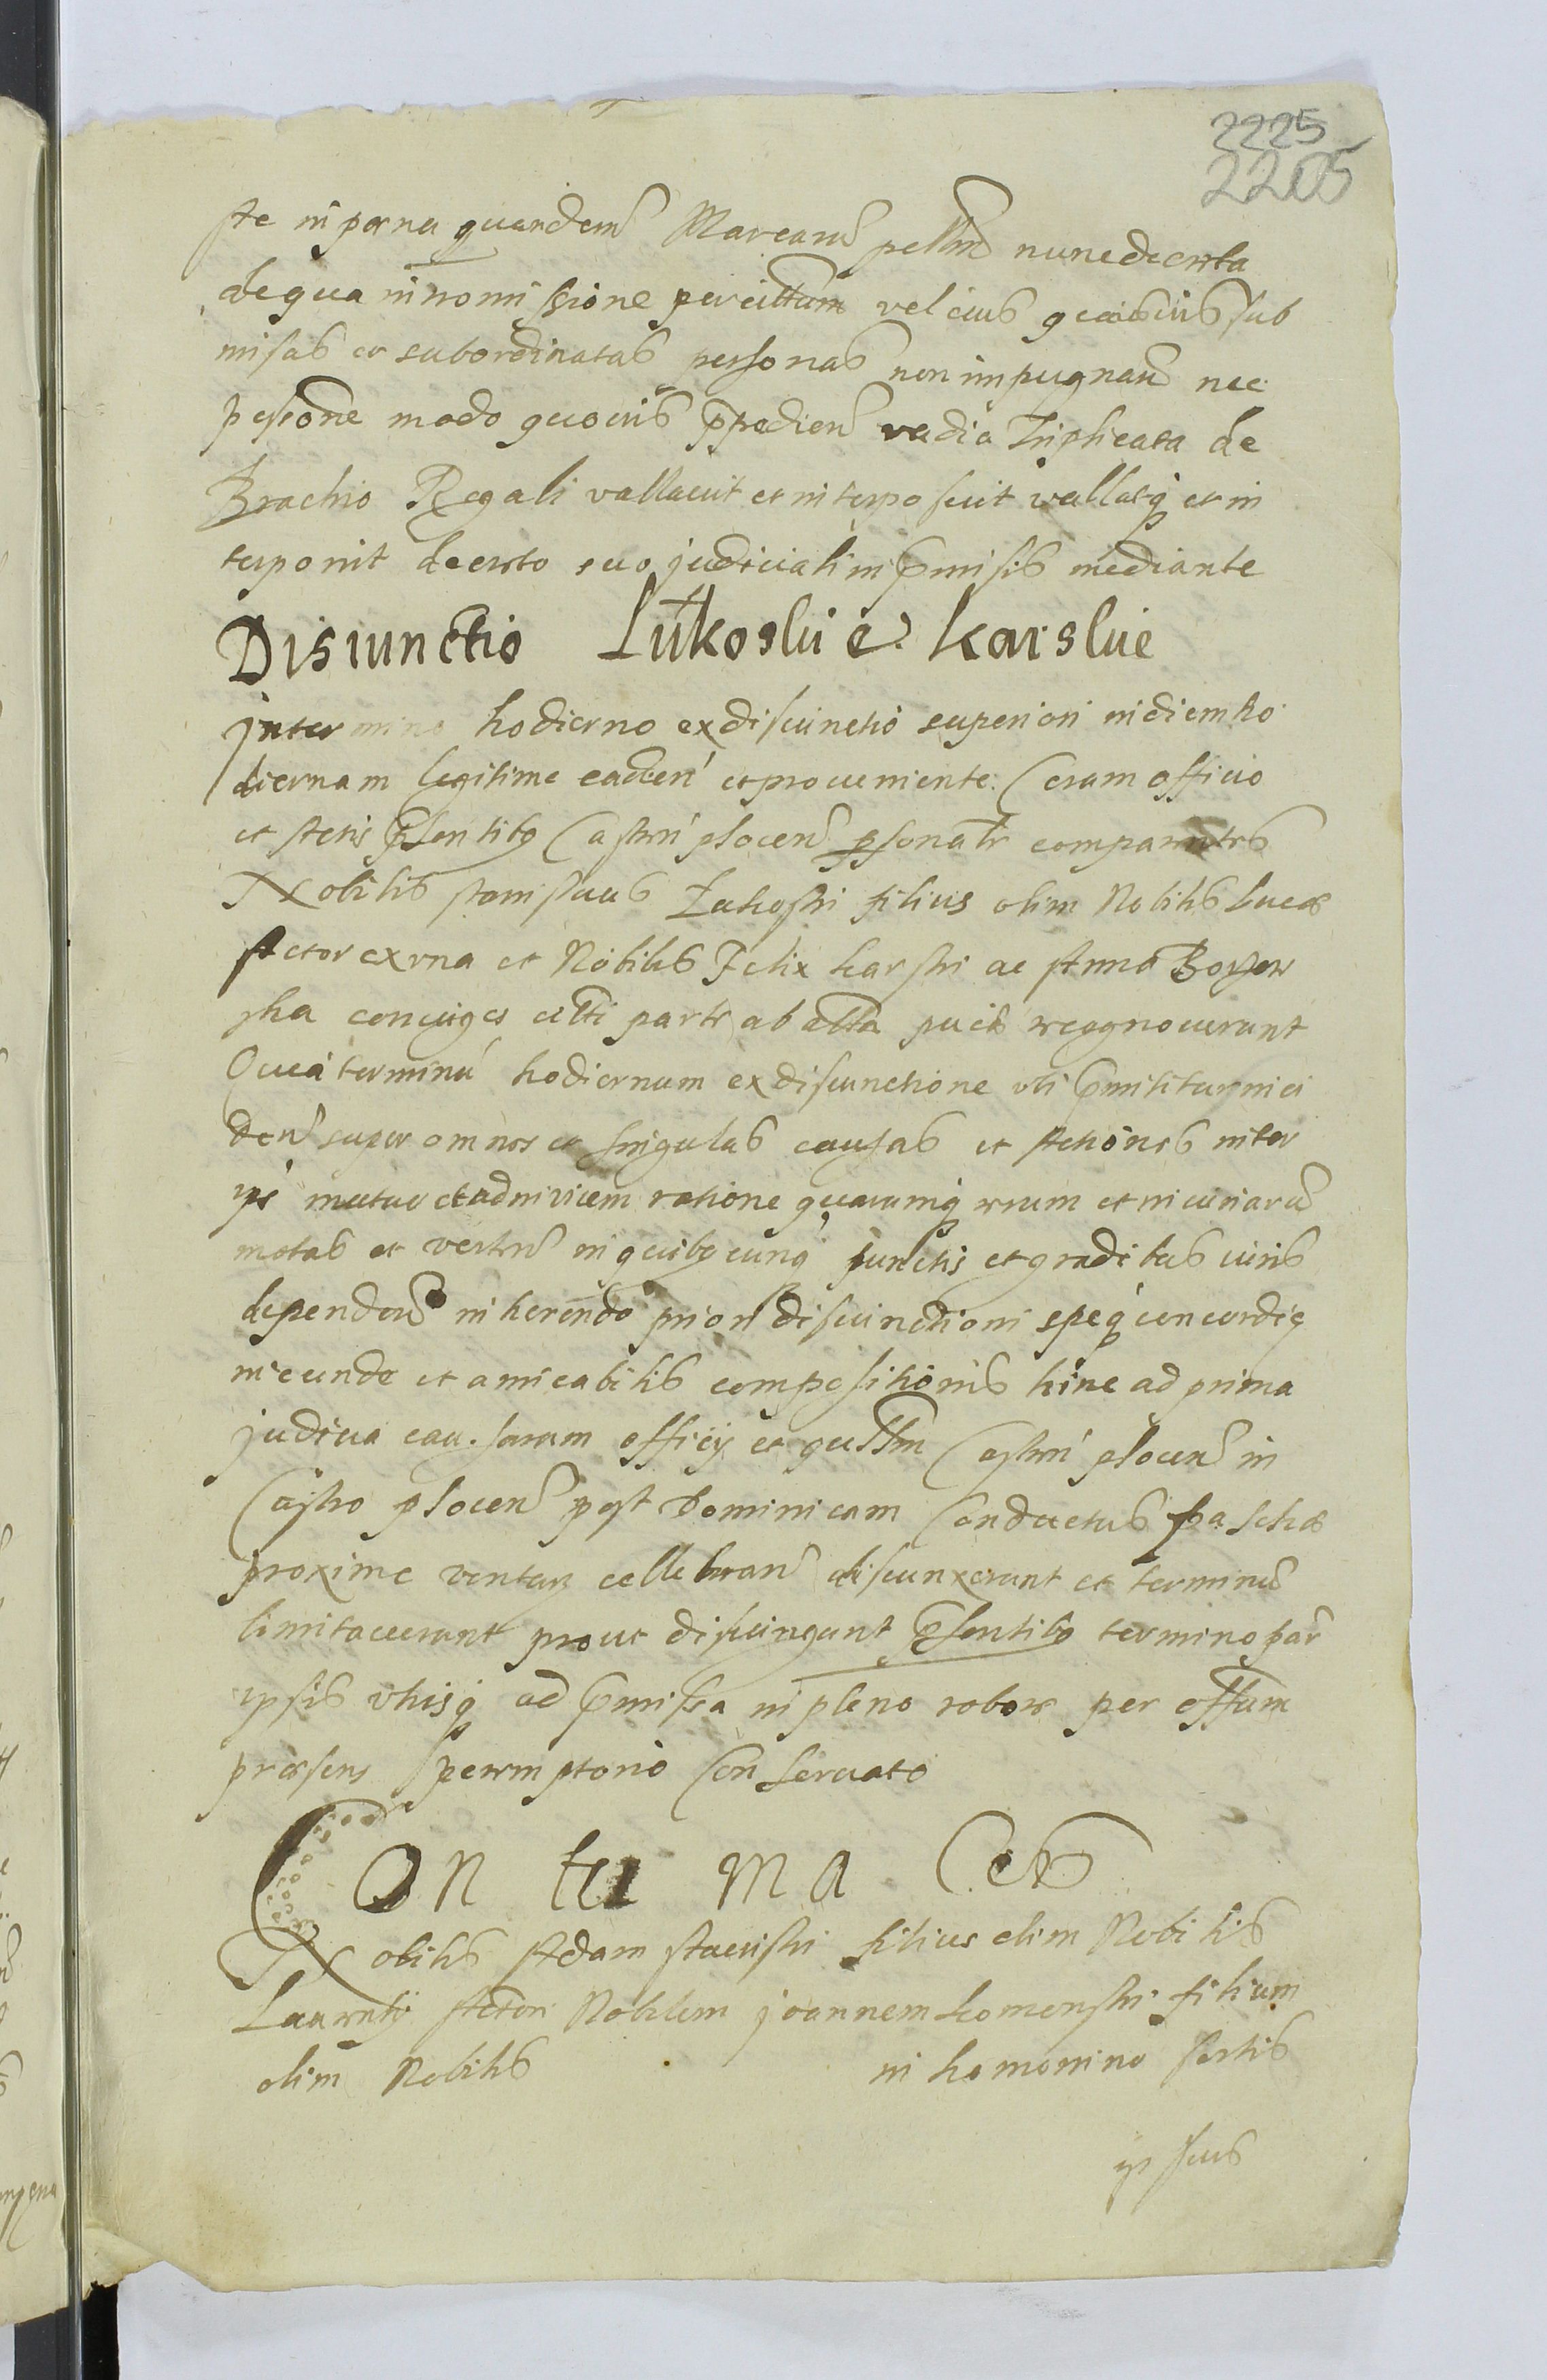 2225
2205
in poena quandem Marcarum nunc decreta
de qua in nomissione per citatum vel eius quasvis sub
misas et subordinatas personas non impugnand nec
modo quovis vadia Triplicata de
Brachio Regali vallavit et interposuit vallatq et in
terponit decreto suo judiciali in pmissis mediante
Disiunctio Lutkoslui e. Karslue
Inter mino hodierno ex disiunctio superiori in diem ho
diernam legitime caden et proveniente. Coram officio
et Actis psentibq Castri plocen psonalr comparentes
Nobilis Stanislaus filius olim Nobilis Lucae
Actor ex vna et Nobiles Felix Karski ac Anna
ska coniuges citti parte ab altera recognoverunt
Quia terminu hodiernum ex disiunctione uti pmittitur inci
den super omnes et singulas causas et Actiones inter
ips mutuo et ad invicem ratione quarumq rerum et iniuriaru
motas et verten in quibqcunq punctis et gradibus iuris
dependen inherendo priori disiunctioni speq concordię
ineunde et amicabilis compositionis hinc ad prima
judicia causarum officij et Castri plocen in
Castro plocen post Dominicam Conductus Paschae
proxime ventur cellebran disiunxerunt et terminu
limitaverunt prout disiungunt psentibq termino par
ipsis vtrisq ad pmissa in pleno robore per offum
praesens peremptorio conservato
Con tu ma Ces
Nobilis Adam filius olim Nobilis
Laurentij Actor Nobilem joannem Komenski filium
olim Nobilis in Komonino sortis
ipsius